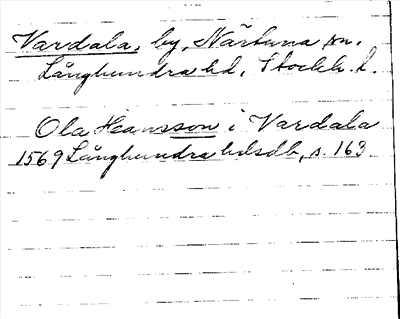 Vardala, by, Närtuna sn.
Långhundra hd, Stockh. l.
Ola Hansson i Vardala
1569 Långhundra hdsdb, s. 163